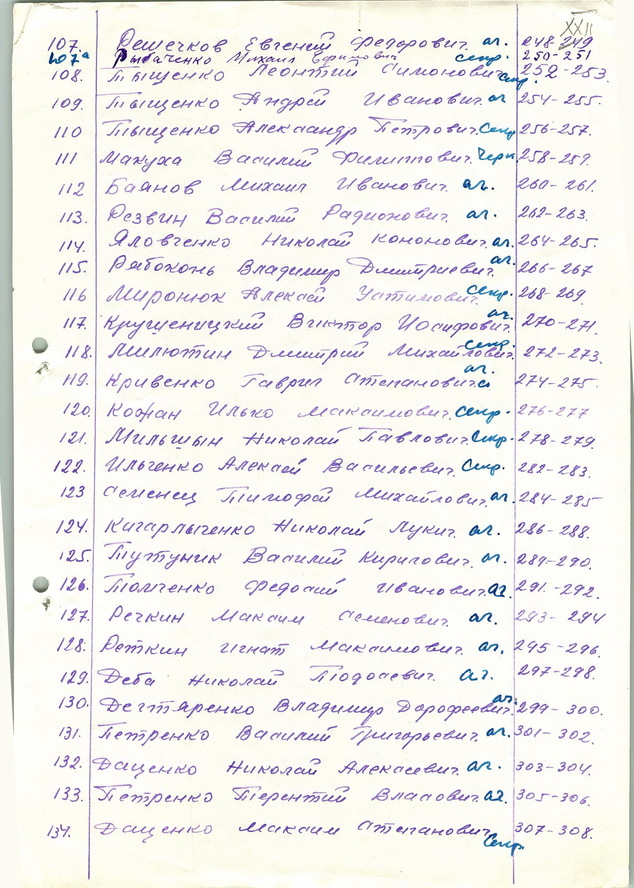 XXII
107. Решечков Евгений Федорович. аг. 248-249
107а Рыбаченко Михаил Ефимович секр. 250-251
108. Тыщенко Леонтий Симонович секр. 252-253.
109. Тыщенко Андрей Иванович. аг 254-255.
110 Тыщенко Александр Петрович. секр 256-257.
111 Макуха Василий Филиппович. 258-259.
112 Баянов Михаил Иванович. аг. 260-261.
113. Резвин Василий Радионович. аг. 262-263.
114. Яловченко Николай Кононович. аг. 264-265.
115. Рябоконь Владимир Дмитриевич. аг. 266-267
116 Миронюк Алексей секр. 268-269.
117. Крушеницкий Виктор Иосифович. аг. 270-271.
118. Милютин Дмитрий Михайлович. секр. 272-273.
119. Кривенко Гаврил Степанович. аг. 274-275.
120. Кожан Илько Максимович. секр. 276-277
121. Мильшын Николай Павлович. секр. 278-279.
122. Ильченко Алексей Васильевич. секр. 282-283.
123 Семенец Тимофей Михайлович. аг. 284-285
124. Кагарлыченко Николай Лукич. аг. 286-288.
125. Тутуник Василий Кирилович. аг. 289-290.
126. Толченко Федосий Иванович. аг. 291-292.
127. Речкин Максим Семенович. аг. 293-294
128. Реткин Игнат Максимович. аг. 295-296.
129. Деба Николай аг. 297-298.
130. Дегтяренко Владимир Дорофеевич. аг. 299-300.
131. Петренко Василий Григорьевич. аг. 301-302.
132. Даценко Николай Алексеевич. аг. 303-304.
133. Петренко Терентий Власович. аг. 305-306.
134. Даценко Максим Степанович. секр. 307-308.